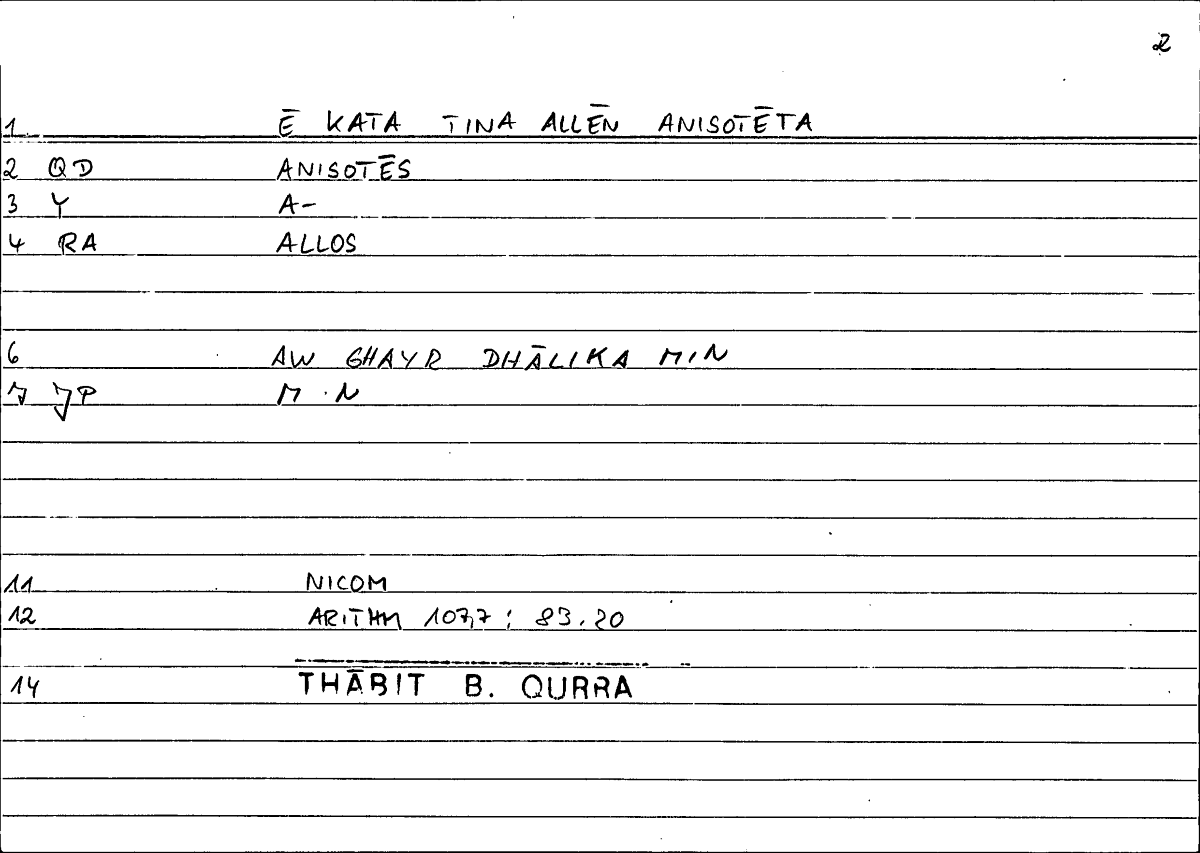 2
1 Ē KATA TINA ALLĒN ANISOTĒTA
2 QD ANISOTĒS
3 Y A-
4 RA ALLOS
6 AW GHAYR DHĀLIKA MIN
7 JP M.N
11 NICOM
12 ARITHM 107,7 : 83.20
14 THĀBIT B. QURRA